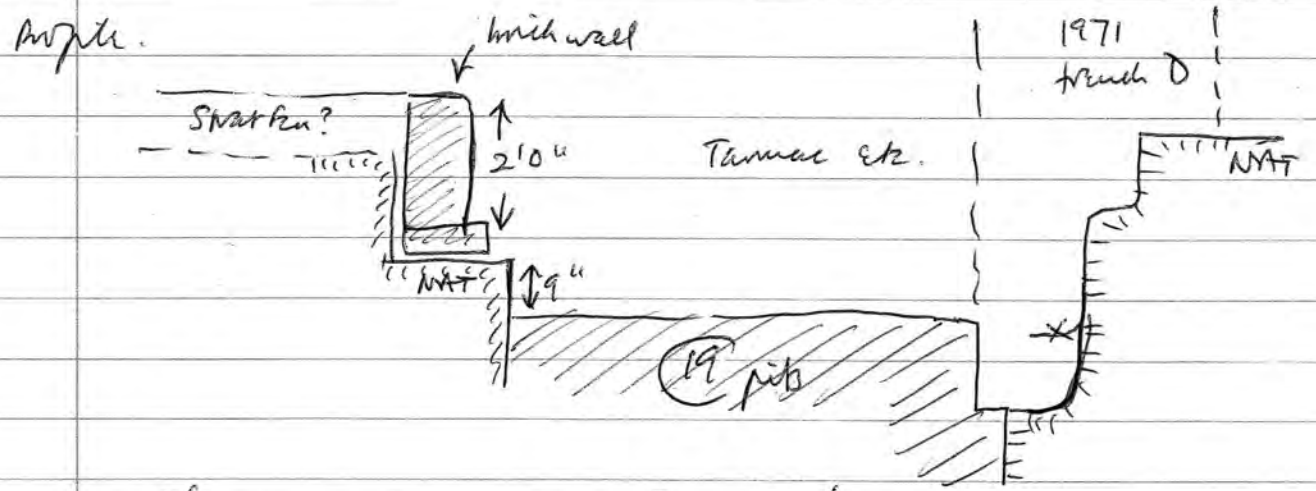 Profile.
brick wall
1971
trench D
Strat fen?
2'0"
Tarmac etc.
NAT
NAT
9"
19 pit